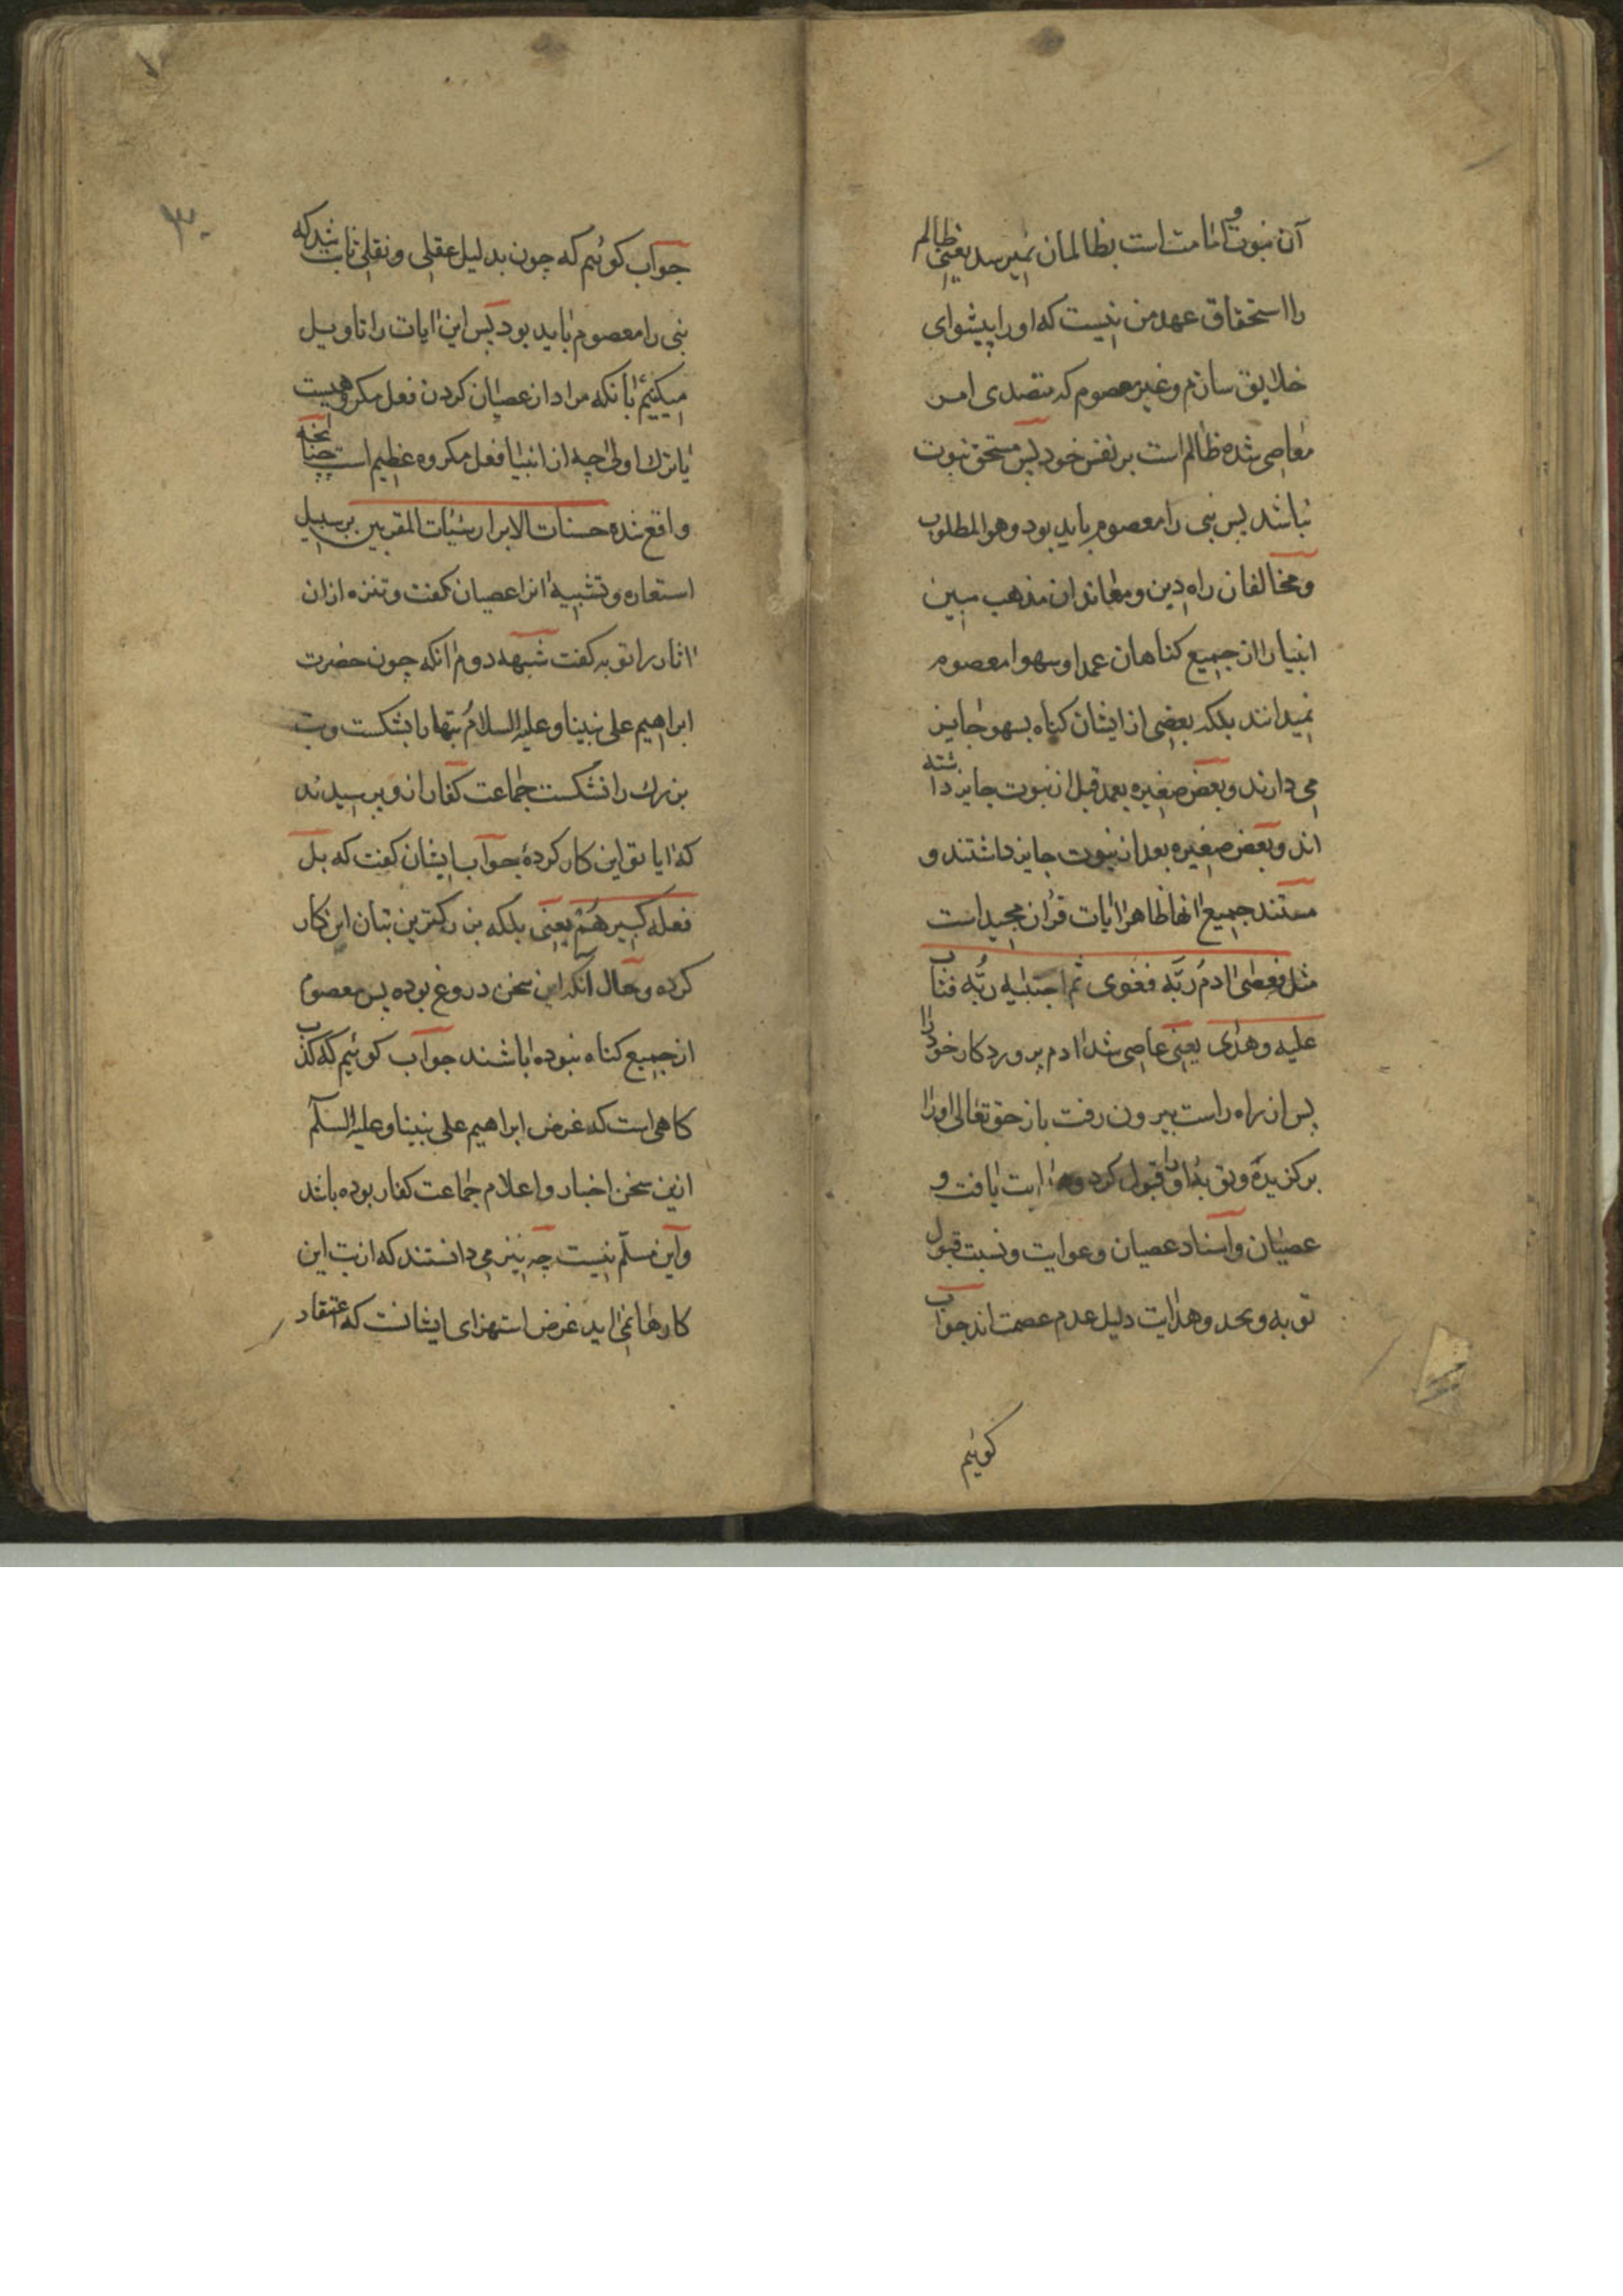 آن نبوت و امامت است بظالمان نمیرسد یعنی ظالم
را استحقاق عهد من نیست که او را پیشوای
خلایق سازم و غیر معصوم که متصدی امر
معاصی شده ظالم است بر نفس خود پس مستحق نبوت
نباشد پس نبی را معصوم باید بود و هو المطلوب
و مخالفان راه دین و معاندان مذهب مبین
انبیا را از جمیع کناهان عمدا و سهوا معصوم
نمیدانند بلکه بعضی از ایشان کناه بسهو جایز
می دارند و بعض صغیره بعمد قبل از نبوت جایز داشته
اند و بعض صغیره بعد از نبوت جایز داشتند و
مستند جمیع انها ظاهر ایات قران مجید است
مثل فعصی ادم رَبَّه فغوی ثم اجتبیه رَبُّه فتاب
علیه و هدی یعنی عاصی شد ادم پروردکار خود را
پس از راه راست بیرون رفت باز حق تعالی او را
برکزیده و توبه او را قبول کرد و هدایت یافت و
عصیان و اسناد عصیان و غوایت و نسبت قبول
توبه و هدایت دلیل عدم عصمت اند جواب
کوئیم
۳۰
جواب کوئیم که چون بدلیل عقلی و نقلی ثابت شد که
نبی را معصوم باید بود پس این ایات را تاویل
میکنیم بانکه مراد از عصیان کردن فعل مکروهیست
یا ترک اولی چه از انبیا فعل مکروه عظیم است چنانچه
واقع شده حسنات الابرار سیئات المقربین بر سبیل
استعاره و تشبیه انرا عصیان کفت و تنزه از ان
اثار را توبه کفت شبهه دوم انکه چون حضرت
ابراهیم علی نبینا و علیه السلام بتها را بشکست و بت
بزرک را نشکست جماعت کفار از و پرسیدند
که ایا تو این کار کردهٔ جواب ایشان کفت که بل
فعله کبیرهُمْ یعنی بلکه بزرکترین بتان این کار
کرده و حال انکه این سخن دروغ بوده پس معصوم
از جمیع کناه نبوده باشند جواب کوئیم که کذب
کاهی است که غرض ابراهیم علی نبینا و علیه السلم
ازین سخن اخبار و اعلام جماعت کفار بوده باشد
و این مسلّم نیست چه نیز می دانستند که از بت این
کارها نمی اید غرض استهزای ایشانست که اعتقاد